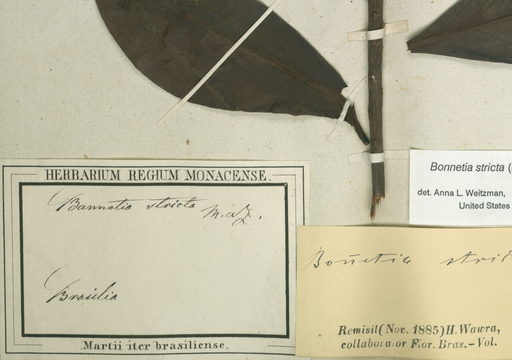 HERBARIUM REGIUM MONACENSE.
Bonnetia stricta M. & Z.
Brasilia
Martii iter brasiliense.
Bonnetia stricta (
det. Anna L. Weitzman,
United States
Bonnetia stric
Remisit (Nov. 1885) H. Wawra,
collaborator Flor. Bras. - Vol.